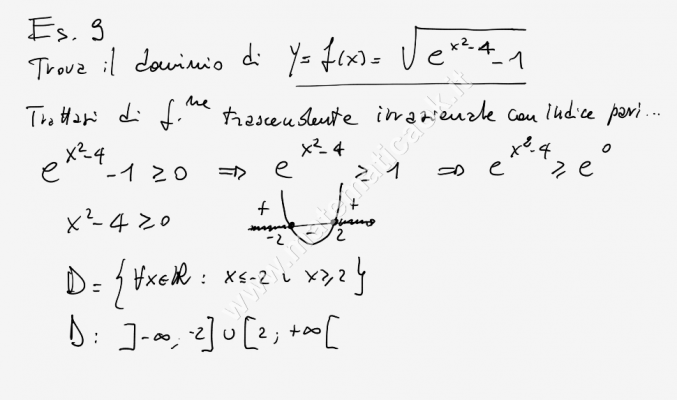 Es. 9
Trova il dominio di y = f(x) = √(e^(x²-4) - 1)
Trattasi di f.ne trascendente irrazionale con indice pari...
e^(x²-4) - 1 ≥ 0 ⇒ e^(x²-4) ≥ 1 ⇒ e^(x²-4) ≥ e^0
x² - 4 ≥ 0 + - + -2 2
D = { ∀x∈ℝ : x ≤ -2 ∨ x ≥ 2 }
D: ]-∞; -2] ∪ [2; +∞[
www.matematicaok.it